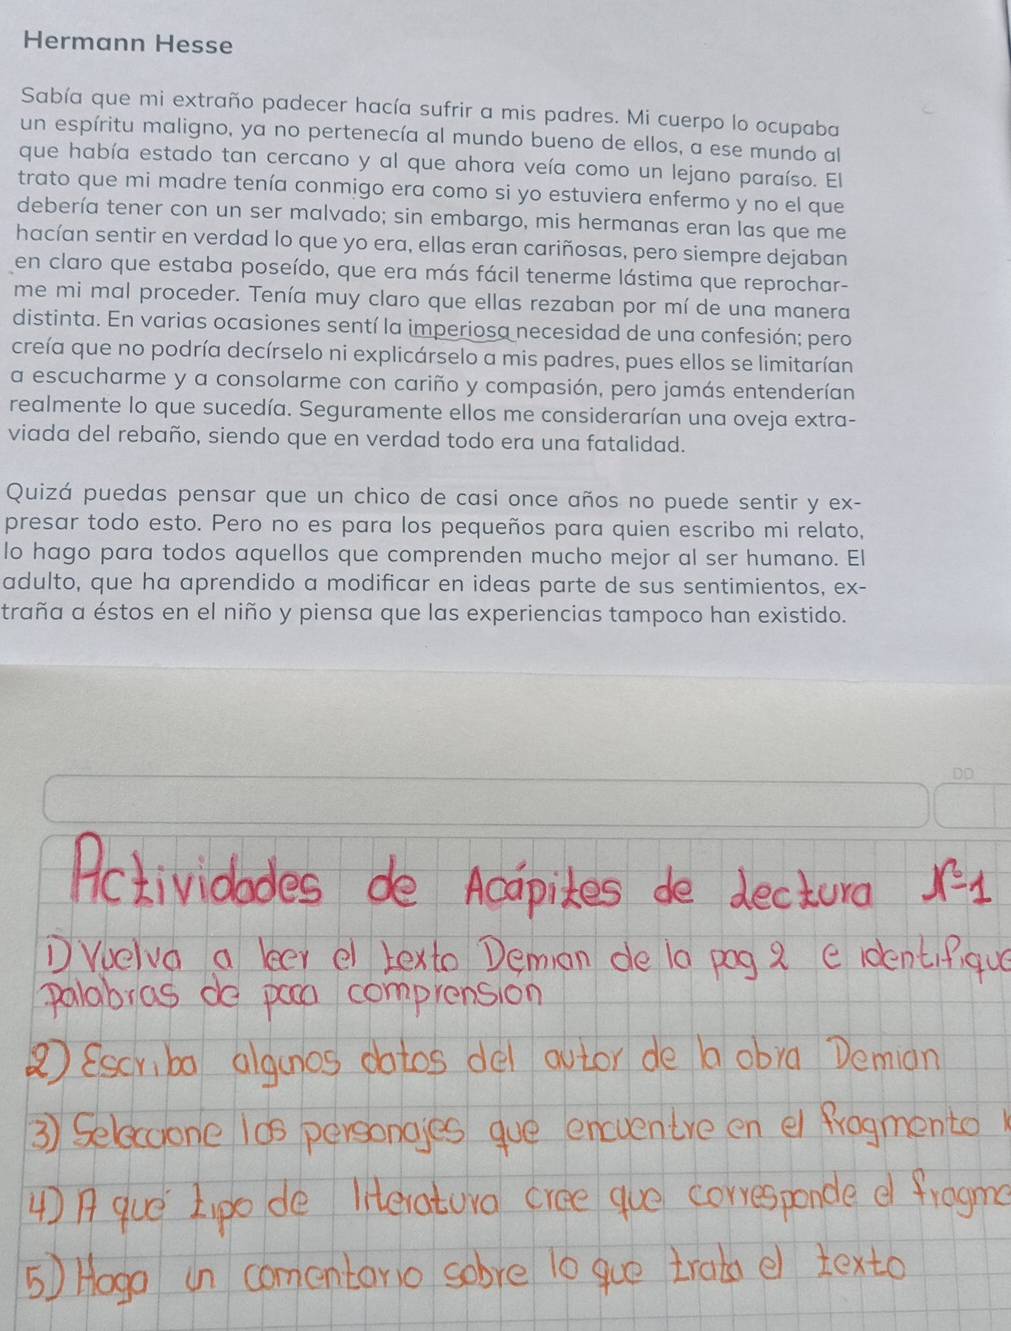 Hermann Hesse
Sabía que mi extraño padecer hacía sufrir a mis padres. Mi cuerpo lo ocupaba
un espíritu maligno, ya no pertenecía al mundo bueno de ellos, a ese mundo al
que había estado tan cercano y al que ahora veía como un lejano paraíso. El
trato que mi madre tenía conmigo era como si yo estuviera enfermo y no el que
debería tener con un ser malvado; sin embargo, mis hermanas eran las que me
hacían sentir en verdad lo que yo era, ellas eran cariñosas, pero siempre dejaban
en claro que estaba poseído, que era más fácil tenerme lástima que reprochar-
me mi mal proceder. Tenía muy claro que ellas rezaban por mí de una manera
distinta. En varias ocasiones sentí la imperiosa necesidad de una confesión; pero
creía que no podría decírselo ni explicárselo a mis padres, pues ellos se limitarían
a escucharme y a consolarme con cariño y compasión, pero jamás entenderían
realmente lo que sucedía. Seguramente ellos me considerarían una oveja extra-
viada del rebaño, siendo que en verdad todo era una fatalidad.
Quizá puedas pensar que un chico de casi once años no puede sentir y ex-
presar todo esto. Pero no es para los pequeños para quien escribo mi relato,
lo hago para todos aquellos que comprenden mucho mejor al ser humano. El
adulto, que ha aprendido a modificar en ideas parte de sus sentimientos, ex-
traña a éstos en el niño y piensa que las experiencias tampoco han existido.
DD
Actividades de Acápites de Lectura Nº1
1) Vuelva a leer el texto Demian de la pag 2 e identifique
palabras de poca comprension
2) Escriba algunos datos del autor de la obra Demian
3) Seleccione los personajes que encuentre en el fragmento
4) A qué tipo de literatura cree que corresponde el fragme
5) Haga un comentario sobre lo que trata el texto